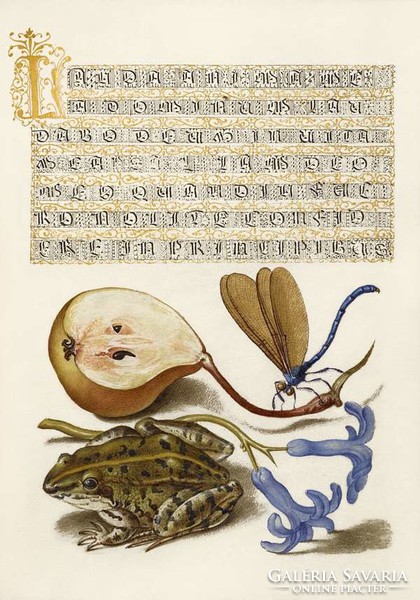 LAUDA ANIMA ME
A DOMINUM LAU
DABO DEUM IN UITA
MEA PSALLAM DEO
MEO QUANDIU FUE
RO NOLITE CONFID
ERE IN PRINCIPIBUS
GALÉRIA SAVARIA
ONLINE PIACTÉR